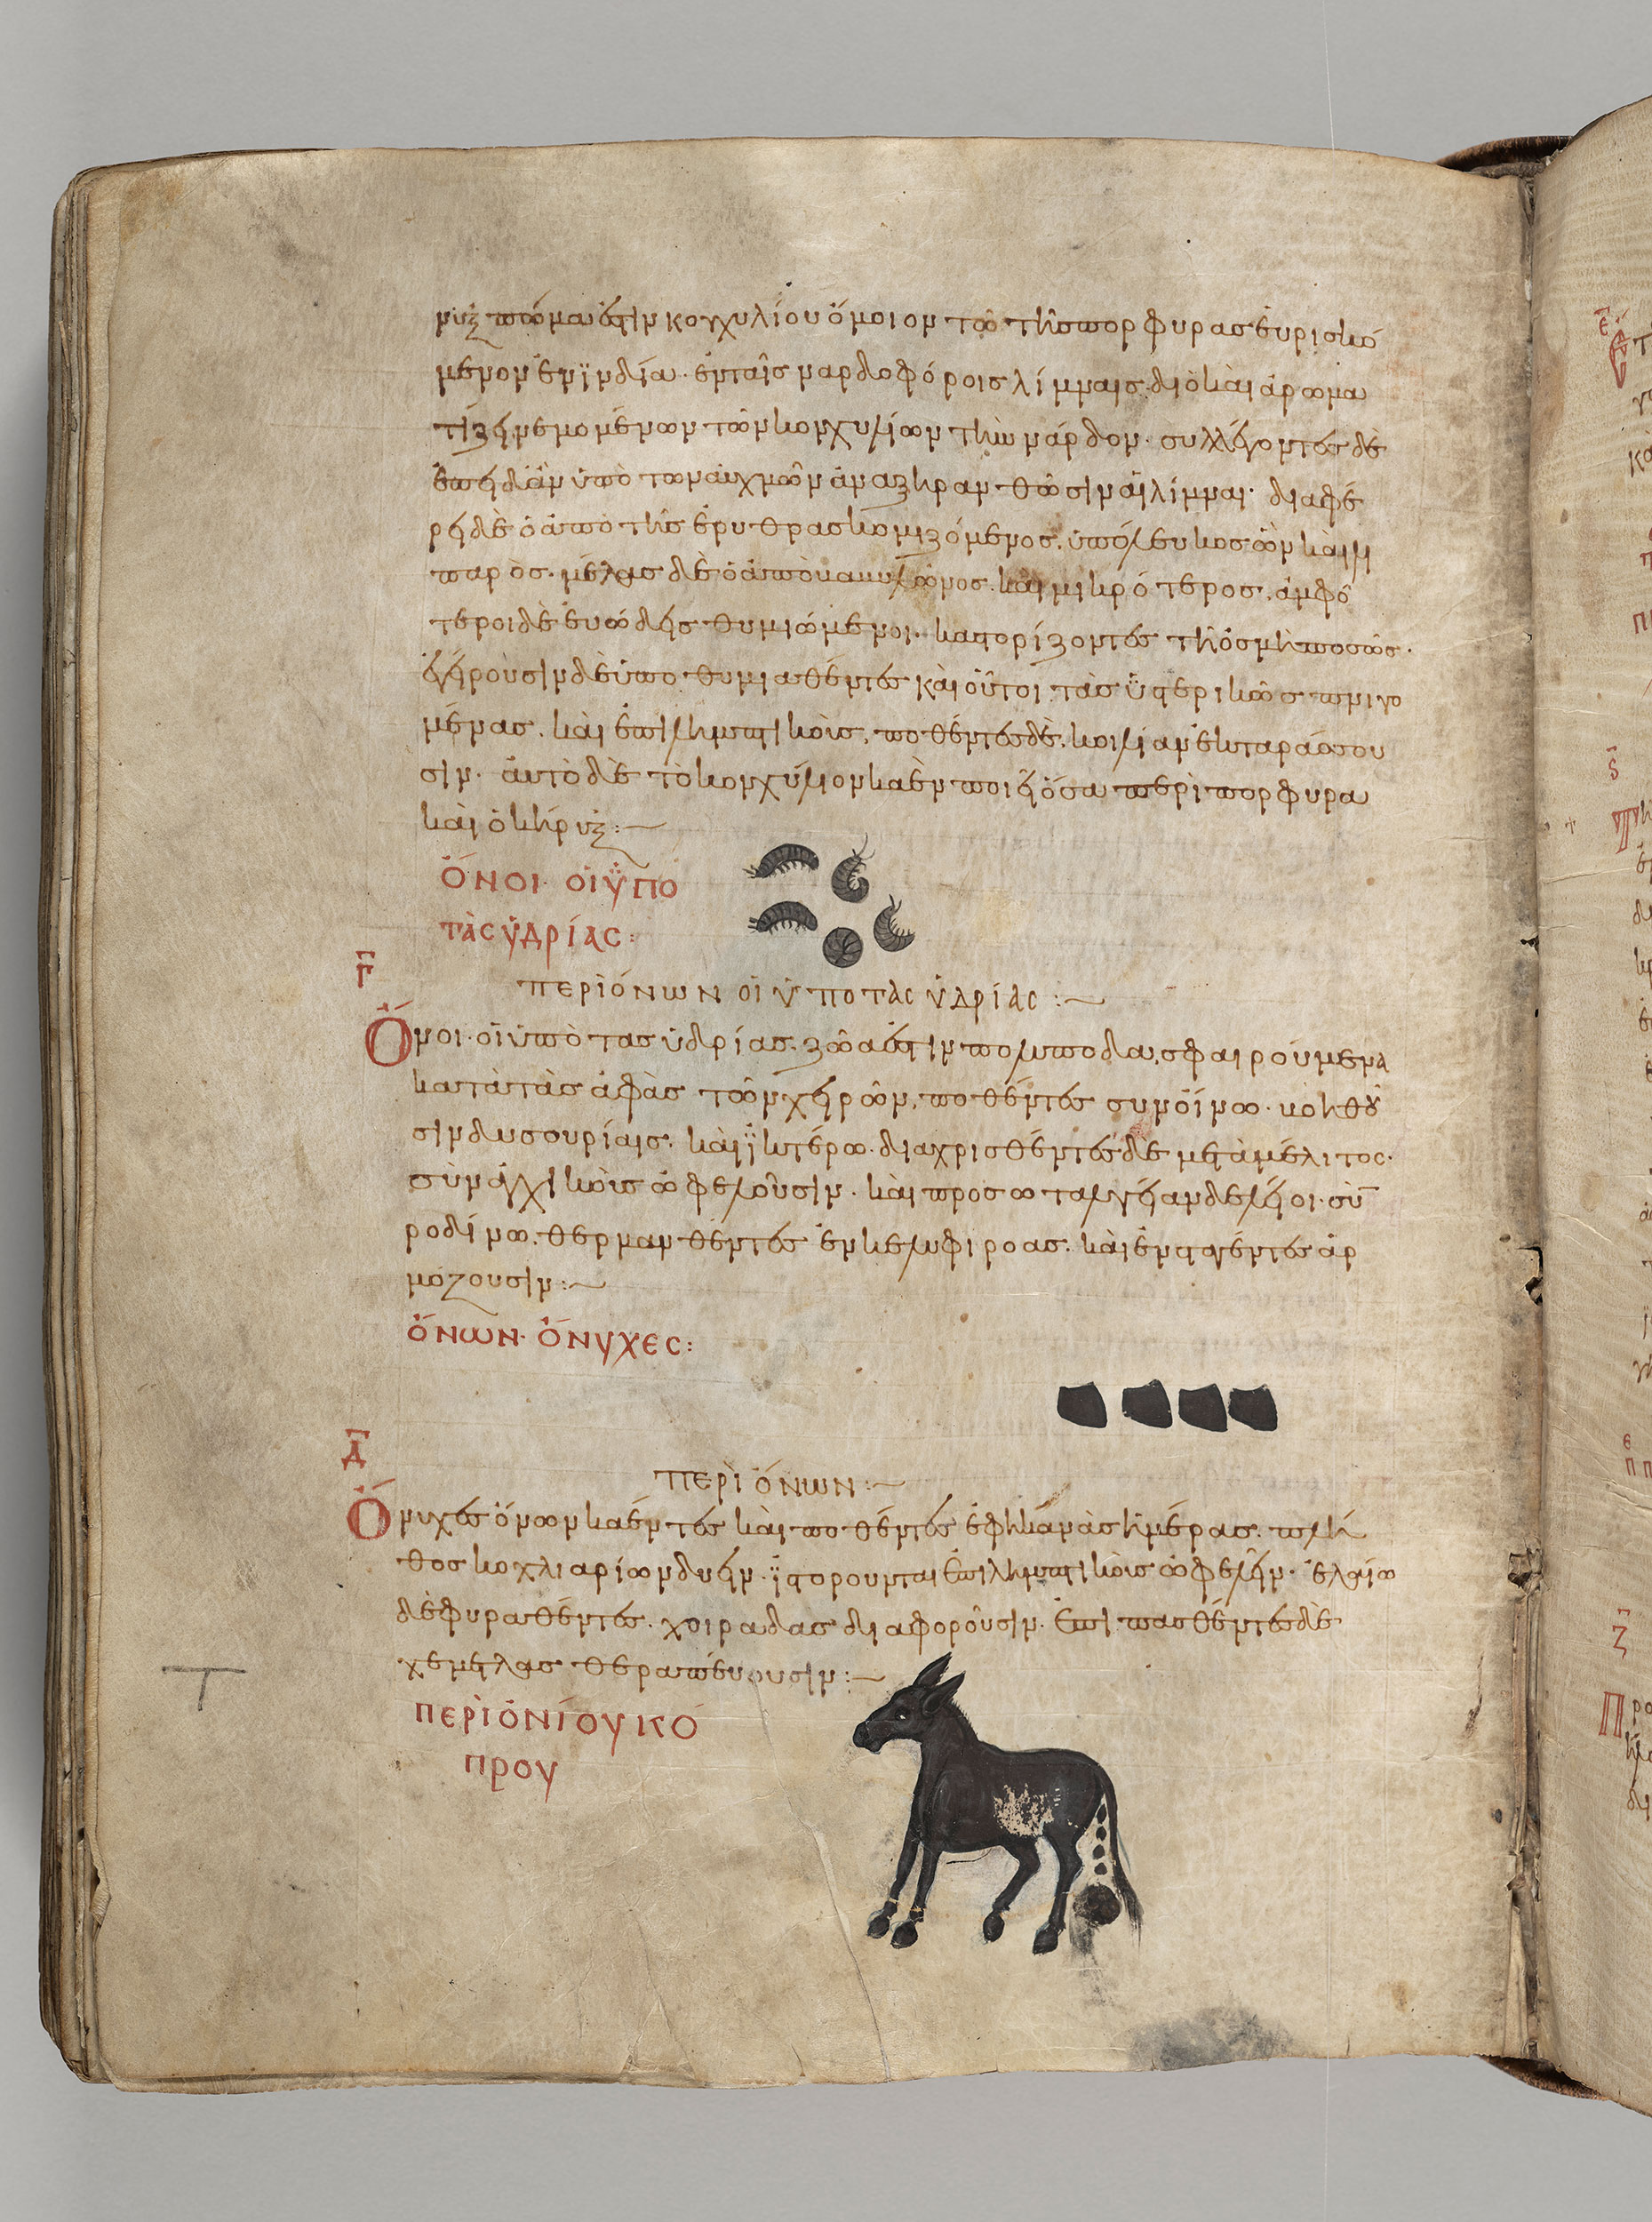 νυξ πῶμα ἐστὶν κογχυλίου ὅμοιον τῶ τῆς πορφύρας εὑρισκό
μενον ἐν ϊνδία· ἐν ταῖς ναρδοφόροις λίμναις· διὸ καὶ ἀρωμα
τίζει νεμομένων τῶν κογχυλίων τὴν νάρδον· συλλέγοντες δὲ
ἐπειδὰν ὑπὸ τῶν αὐχμῶν ἀναξηρανθῶσιν αἱ λίμναι· διαφέ
ρει δὲ ὁ ἀπὸ τῆς ἐρυθρας κομιζόμενος. ὑπόλευκος ὢν καὶ λι
παρὸς. μέλας δὲ ὁ ἀπὸ βαβυλῶνος. καὶ μικρότερος. ἀμφό
τεροι δὲ εὐώδεις θυμιώμενοι. καστορίζοντες τῆ ὀσμῆ ποσῶς·
ἐγείρουσιν δὲ ὑποθυμιαθέντες καὶ οὗτοι τὰς ὑστερικῶς πνιγο
μένας. καὶ ἐπιλημπτικοὺς. ποθέντες δὲ. κοιλίαν ἐκταράσσου
σιν· αὐτὸ δὲ τὸ κογχύλιον καὲν ποιεῖ ὅσα περὶ πορφύρα
καὶ ὁ κήρυξ :~
ὄνοι· οἱ ὑπὸ
τὰς ὑδρίας :
Γ
περὶ ὄνων οἱ ὑπο τὰς ὑδρίας :~
Ὄνοι· οἱ ὑπὸ τας ὑδρίας. ζῶα ἐστὶν πολύποδα, σφαιρούμενα
κατὰ τὰς ἁφὰς τῶν χειρῶν, ποθέντες συν οἴνω· βοηθοῦ
σιν δυσουρίαις. καὶ ϊκτέρω. διαχρισθέντες δὲ μετὰ μέλιτος·
συναγχικοὺς ὠφελοῦσιν· καὶ προς ωταλγείαν δε λεῖοι· σὺν
ροδίνω. θερμανθέντες ἐν κελύφι ροας. καὶ ἐνσταγέντες ἁρ
μόζουσιν :~
ὄνων· ὄνυχες :
Δ
περὶ ὄνων :~
Ὄνυχες ὄνων καέντες καὶ ποθέντες ἐφ ἱκανὰς ἡμέρας. πλή
θος κοχλιαρίων δυεῖν· ϊστορουνται ἐπιληπτικοὺς ὠφελεῖν· ἐλαίω
δὲ φυραθέντες. χοιραδας διαφοροῦσιν· ἐπιπασθέντες δὲ
χειμετλας θεραπεύουσιν :~
περὶ ὀνίου κό
πρου